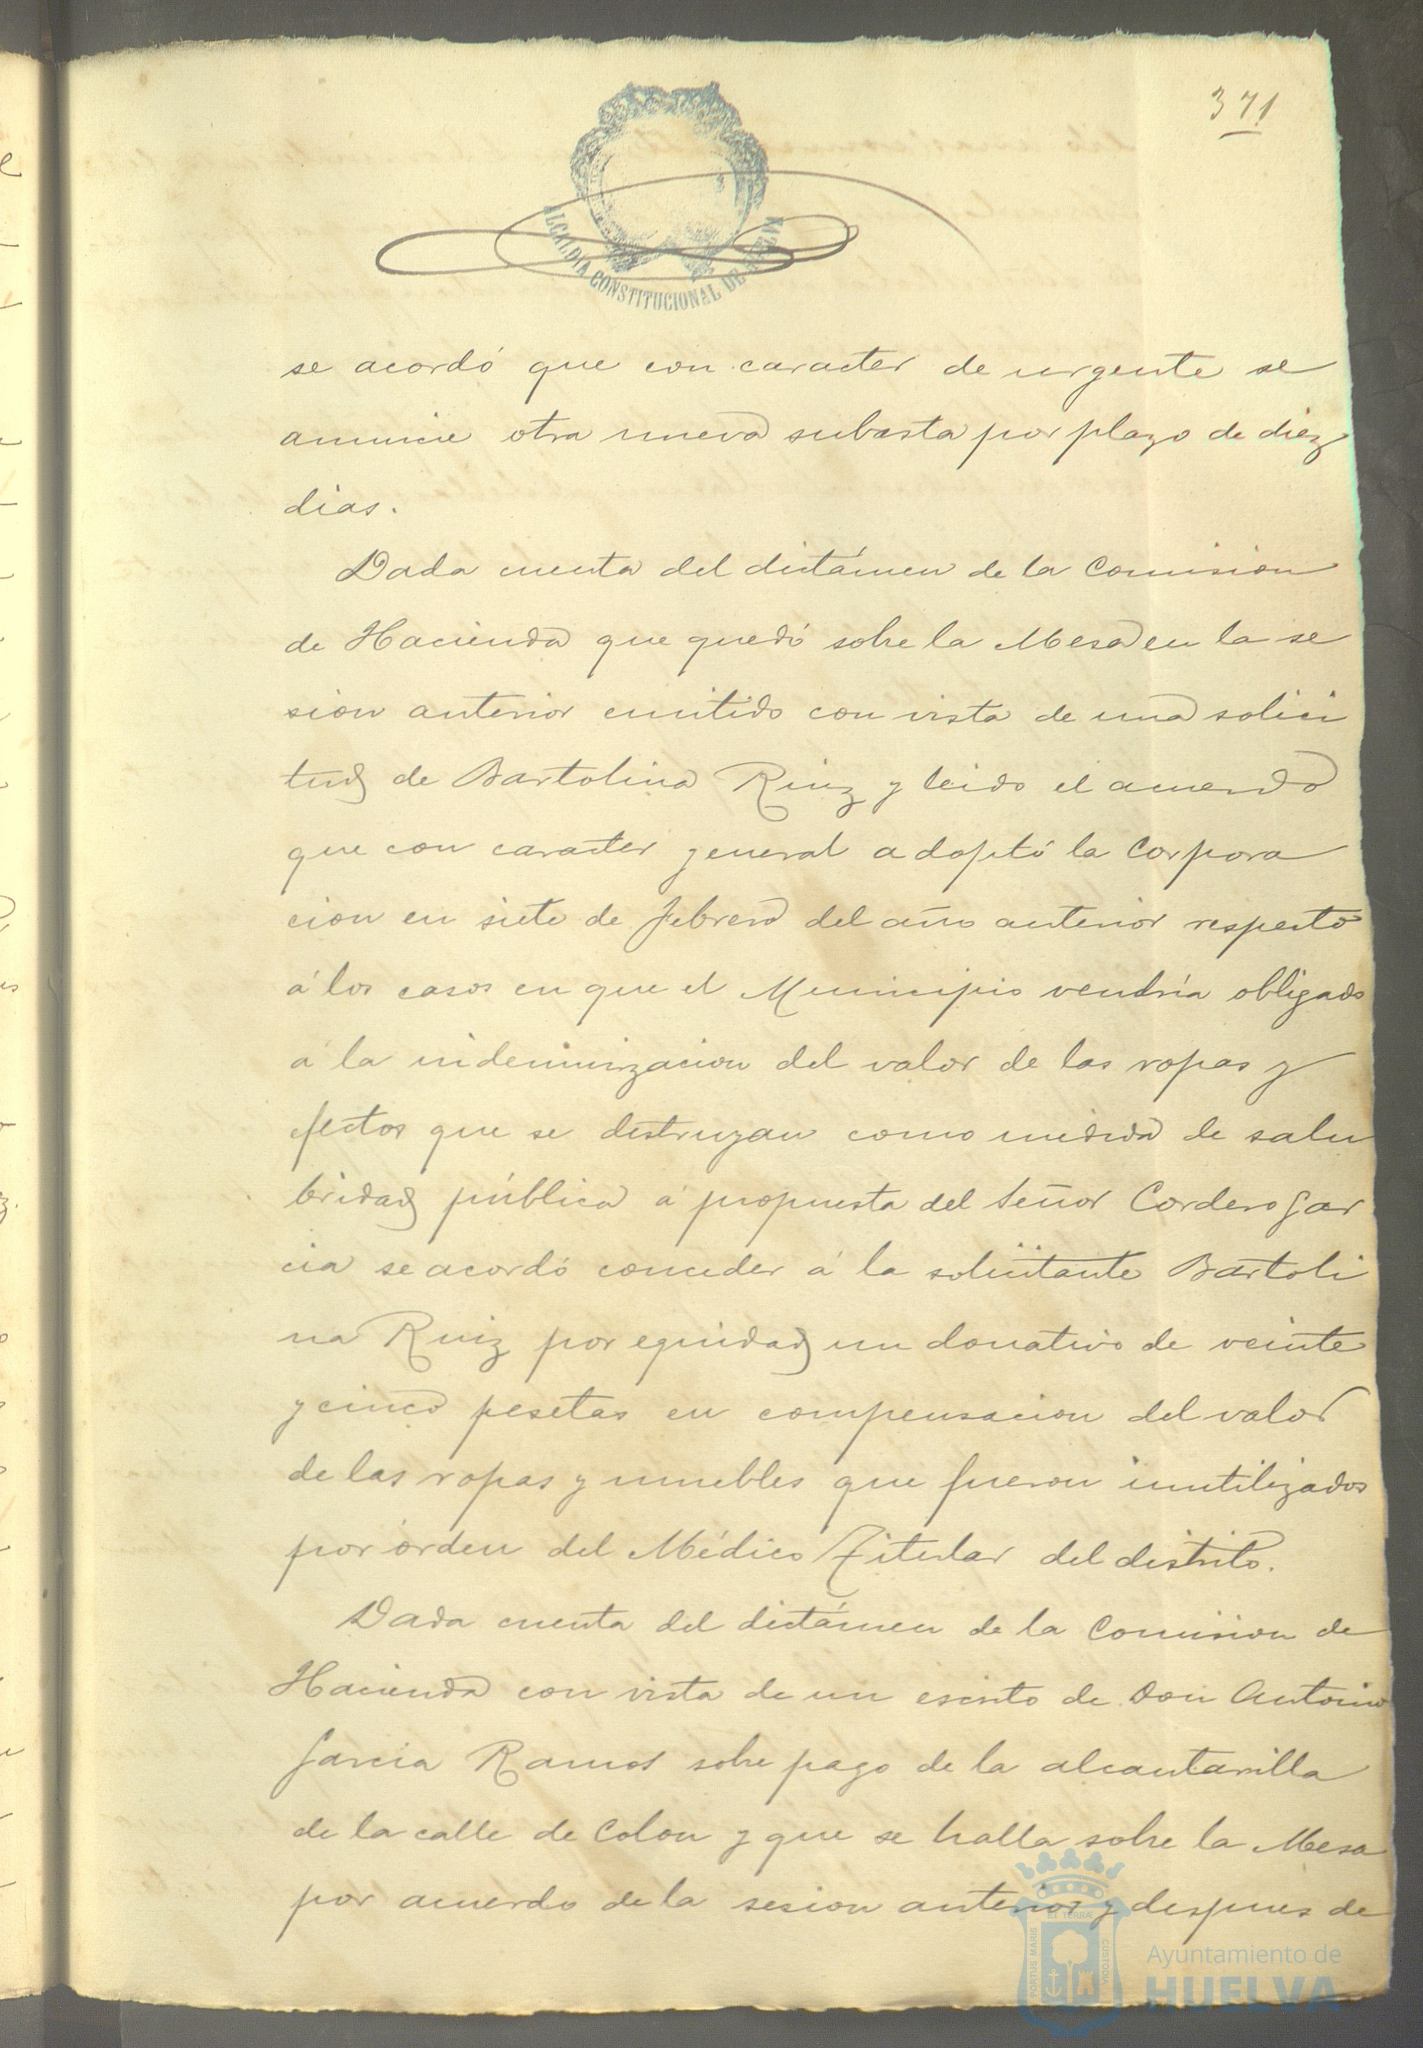 371
ALCALDIA CONSTITUCIONAL DE HUELVA
se acordó que con caracter de urgente se
anuncie otra nueva subasta por plazo de diez
dias.
Dada cuenta del dictámen de la Comision
de Hacienda que quedó sobre la Mesa en la se
sion anterior emitido con vista de una solici
tud de Bartolina Ruiz y leido el acuerdo
que con caracter general adoptó la Corpora
cion en siete de febrero del año anterior respecto
á los casos en que el Municipio vendría obligado
á la indemnizacion del valor de las ropas y
efectos que se destruyan como medida de salu
bridad pública á propuesta del Señor Cordero Gar
cia se acordó conceder á la solicitante Bartoli
na Ruiz por equidad un donativo de veinte
y cinco pesetas en compensacion del valor
de las ropas y muebles que fueron inutilizados
por órden del Médico Titular del distrito.
Dada cuenta del dictámen de la Comision de
Hacienda con vista de un escrito de Don Antonio
Garcia Ramos sobre pago de la alcantarilla
de la calle de Colon y que se halla sobre la Mesa
por acuerdo de la sesion anterior y despues de
PORTUS MARIS ET TERRAE CUSTODIA
Ayuntamiento de
HUELVA